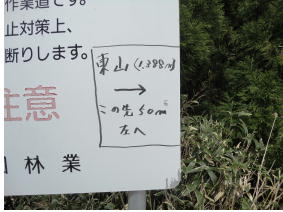 作業道です。
止対策上、
断りします。
注意
林業
東山(1,388m)
→
この先50m
左へ